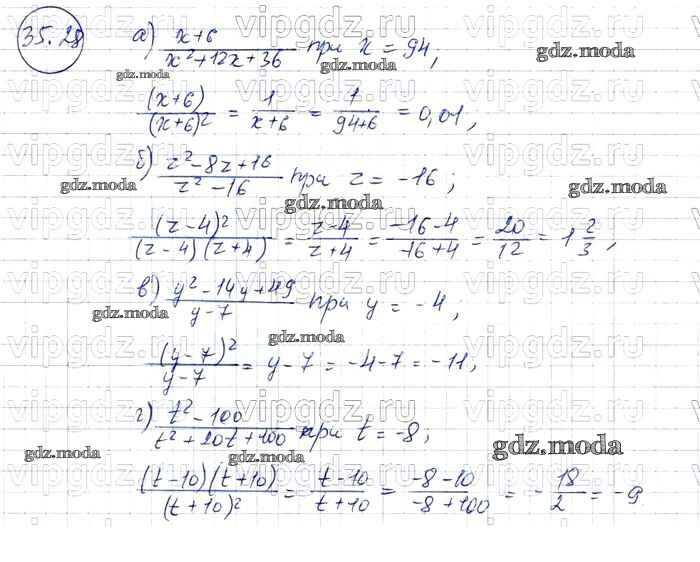 35.28
а) (x+6)/(x²+12x+36) при x = 94;
(x+6)/(x+6)² = 1/(x+6) = 1/(94+6) = 0,01,
б) (z²-8z+16)/(z²-16) при z = -16;
(z-4)²/((z-4)(z+4)) = (z-4)/(z+4) = (-16-4)/(-16+4) = 20/12 = 1 2/3,
в) (y²-14y+49)/(y-7) при y = -4;
(y-7)²/(y-7) = y-7 = -4-7 = -11,
г) (t²-100)/(t²+20t+100) при t = -8;
((t-10)(t+10))/(t+10)² = (t-10)/(t+10) = (-8-10)/(-8+100) = -18/2 = -9
vipgdz.ru
gdz.moda